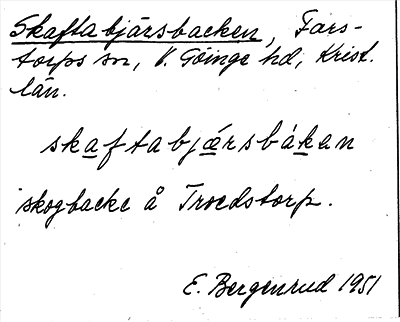 Skaftabjärsbacken, Fars-
torps sn, V. Göinge hd, Krist.
län.
skaftabjæ̲rsbákan
skogbacke å Troedstorp.
E. Bergenrud 1951